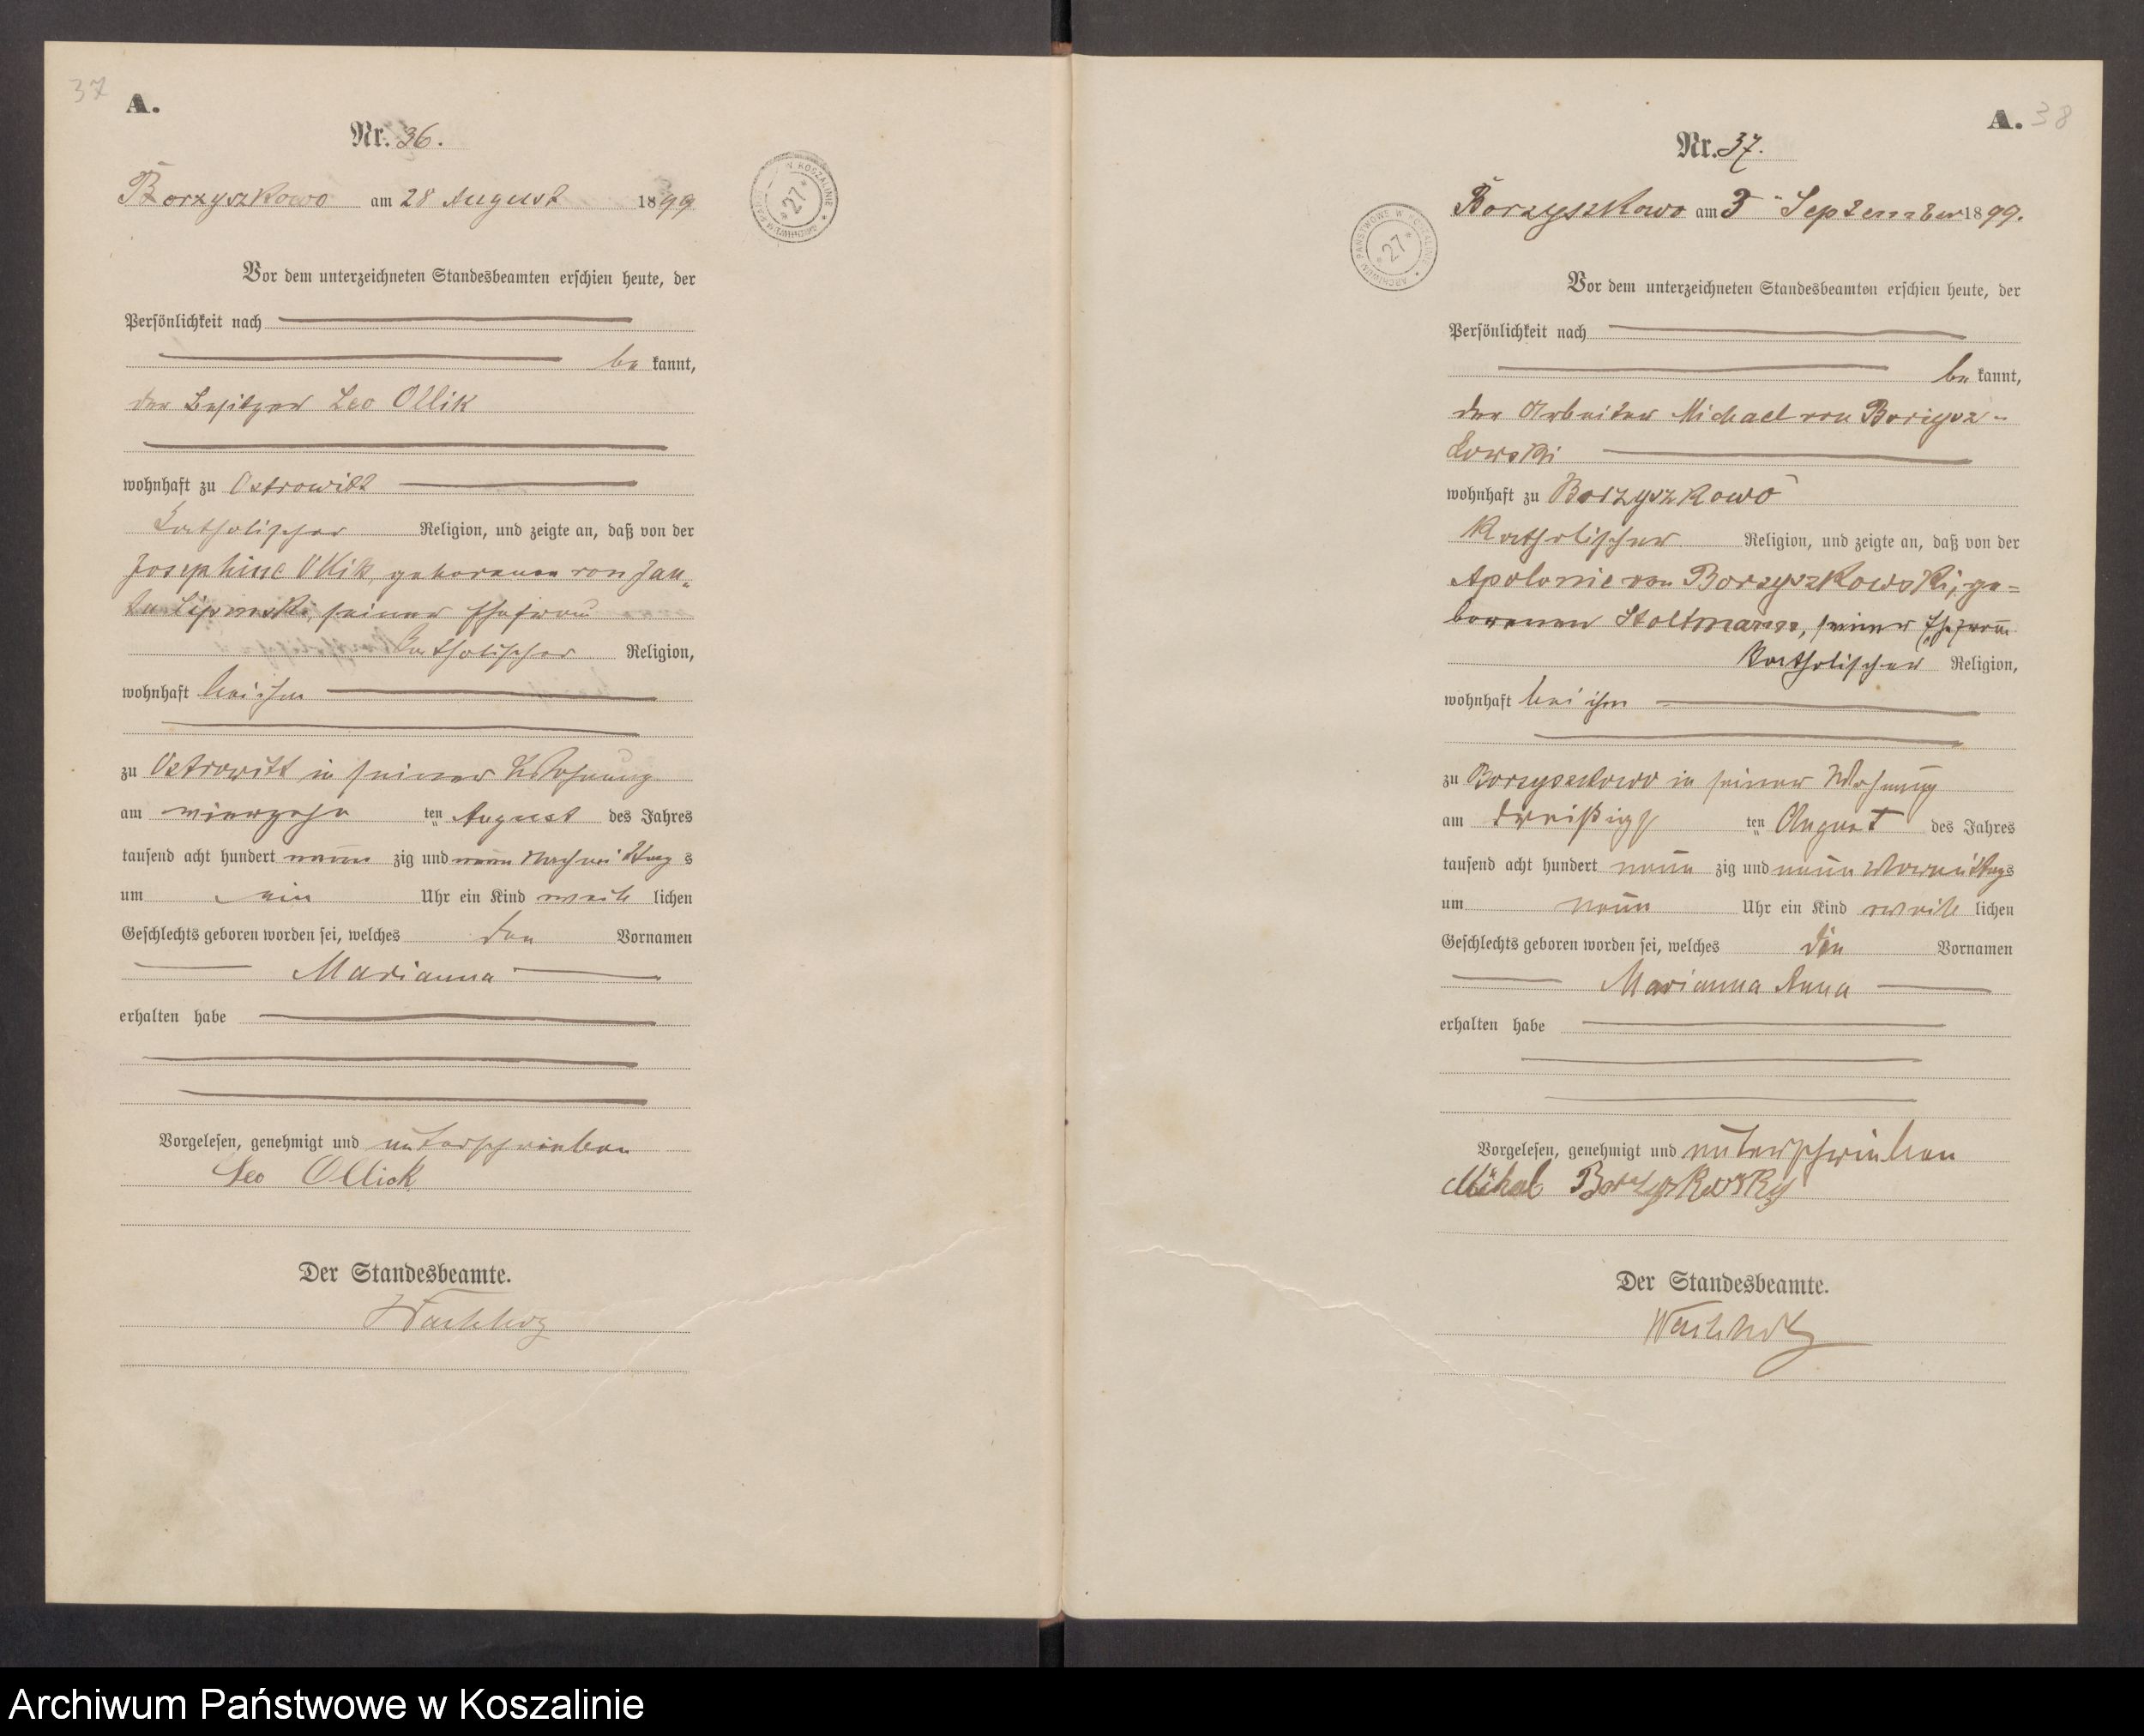 37
A.
Nr. 36.
Borzyszkowo am 28 August 1899
Vor dem unterzeichneten Standesbeamten erschien heute, der
Persönlichkeit nach
be kannt,
der Besitzer Leo Ollik
wohnhaft zu Ostrowitt
katholischer Religion, und zeigte an, daß von der
Josephine Ollik, geborenen von Jan-
ta Lipinski, seiner Ehefrau
katholischer Religion,
wohnhaft bei ihm
zu Ostrowitt in seiner Wohnung
am vierzehn ten August des Jahres
tausend acht hundert neun zig und neun Nachmittag s
um ein Uhr ein Kind weib lichen
Geschlechts geboren worden sei, welches den Vornamen
Marianna
erhalten habe
Vorgelesen, genehmigt und unterschrieben
Leo Ollick
Der Standesbeamte.
ARCHIWUM PAŃSTWOWE W KOSZALINIE
* 27 *
A. 38
Nr. 37.
Borzyszkowo am 3 September 1899.
Vor dem unterzeichneten Standesbeamten erschien heute, der
Persönlichkeit nach
be kannt,
der Arbeiter Michael von Borzysz-
kowski
wohnhaft zu Borzyszkowo
katholischer Religion, und zeigte an, daß von der
Apolonie von Borzyszkowski, ge=
borenen Stoltmann, seiner Ehefrau
katholischer Religion,
wohnhaft bei ihm
zu Borzyszkowo in seiner Wohnung
am dreißigs ten August des Jahres
tausend acht hundert neun zig und neun Vormittags
um neun Uhr ein Kind weib lichen
Geschlechts geboren worden sei, welches die Vornamen
Marianna Anna
erhalten habe
Vorgelesen, genehmigt und unterschrieben
Borzyszkowsky
Der Standesbeamte.
ARCHIWUM PAŃSTWOWE W KOSZALINIE
* 27 *
Archiwum Państwowe w Koszalinie